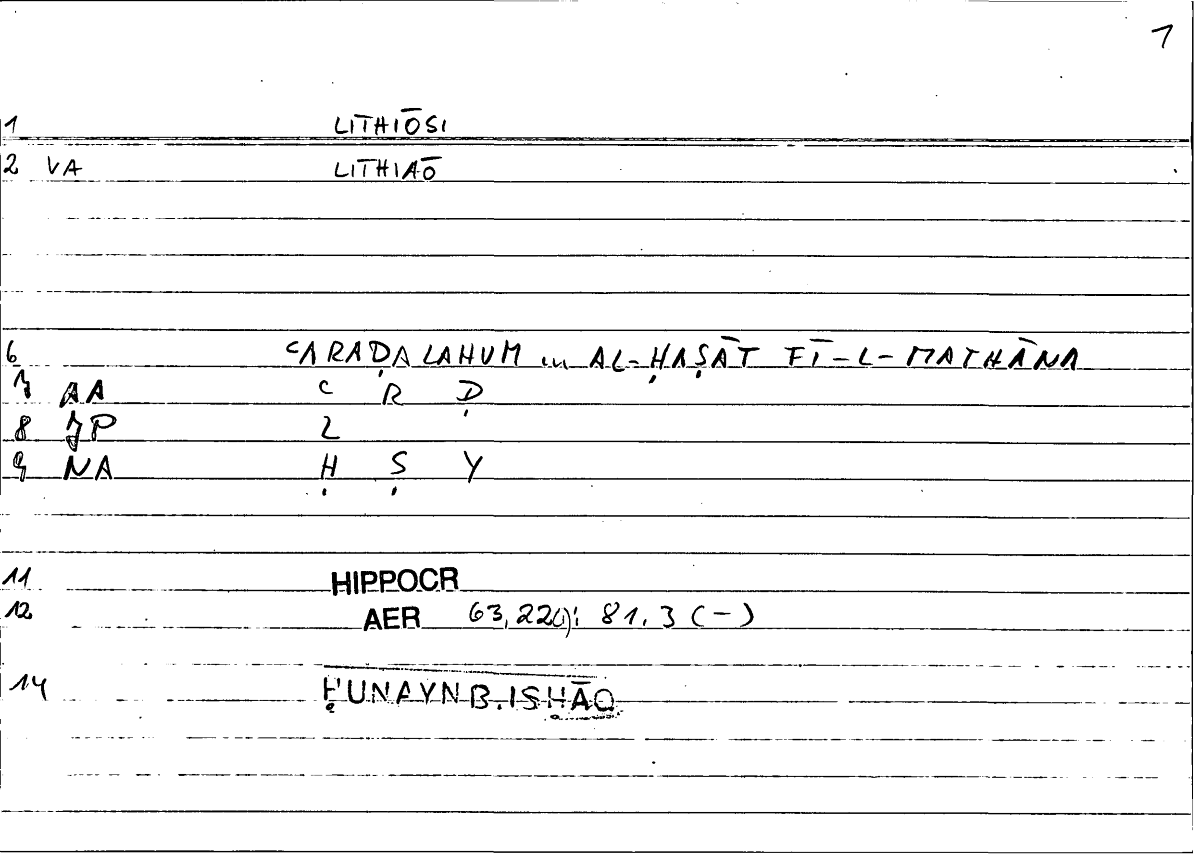 1
1 LITHIŌSI
2 VA LITHIAŌ
6 ʿARAḌALAHUM in AL-ḤAṢĀT FĪ-L-MATHĀNA
7 AA ʿ R Ḍ
8 JP L
9 NA Ḥ Ṣ Y
11 HIPPOCR
12 AER 63,22(1): 81.3 (-)
14 ḤUNAYN B. ISḤĀQ